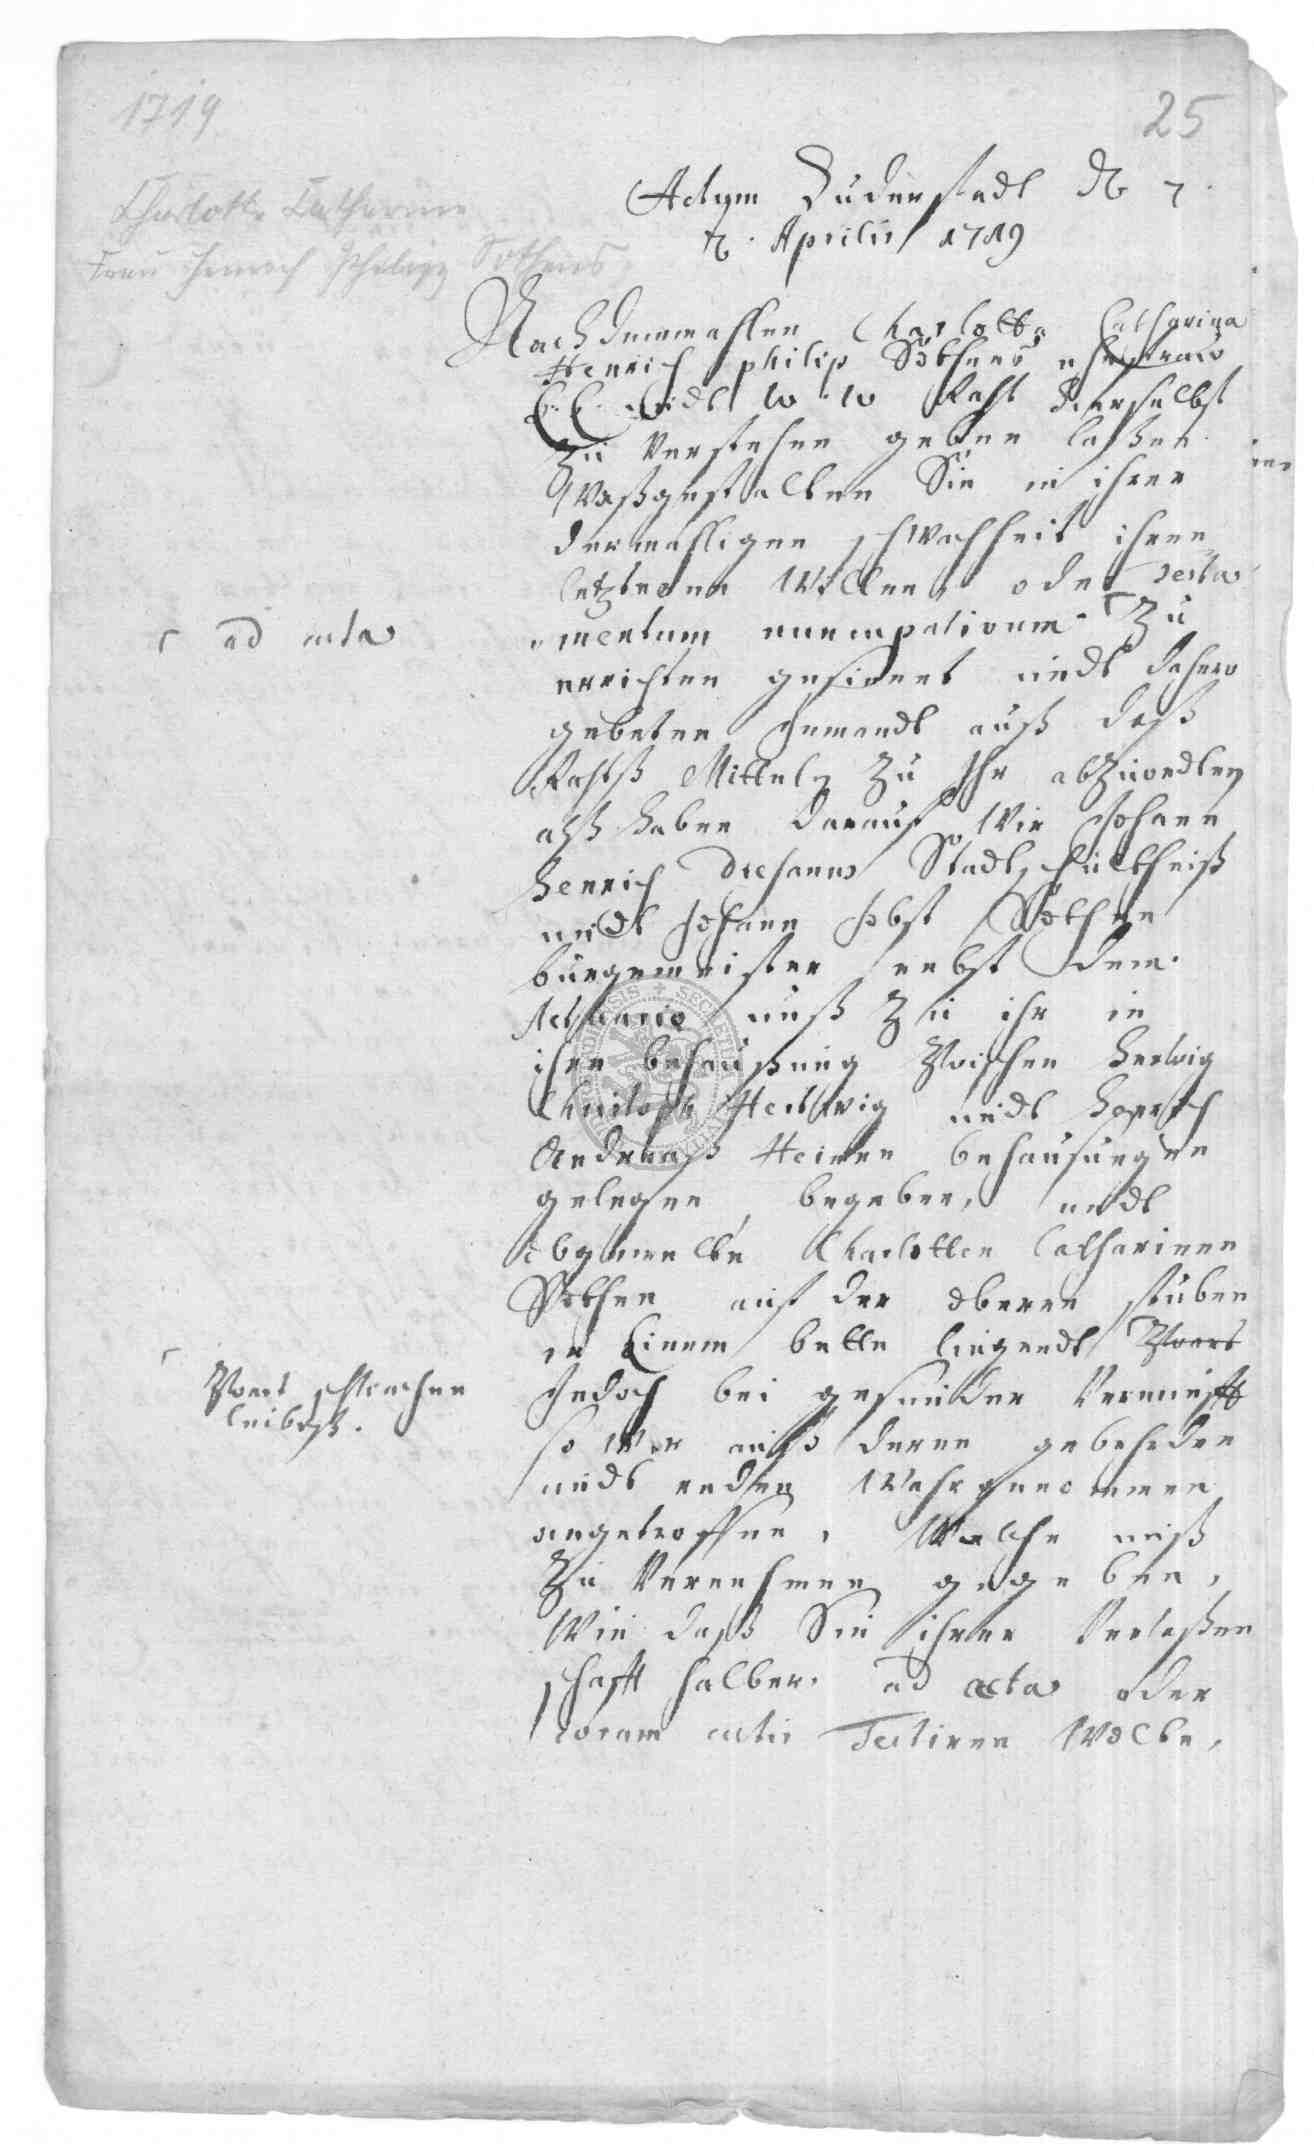 1719
25
Charlotte Catharine
Frau Henrich Philipp Sothens
Actum Duderstadt d. 7
t. Aprilis 1719
Nachdemmahlen Charlotta Catharina
Henrich philip Söthens ehefraw
E. E. undt w. w. Raht hierselbst
zu verstehen geben laßen
Waßgestalten Sie in ihrer
dermahligen schwachheit ihren
letzteren Willen, oder testa
mentum nuncupativum zu
ad acta
errichten gesinnet undt dahero
gebeten Jemandt auß deß
Rahtß Mittel zu Ihr abzuordtn
alß haben darauf Wir Johann
Henrich Stadtschultheiß
undt Johann Jobst Söthen
burgemeister nebst dem
Actuario unß zu ihr in
ihre behaußung zwischen Hertwig
Christoph Hertwig undt Henrich
Andreaß Heinen behausungen
gelegen, begeben, undt
obgemelte Charlotten Catharinen
Söthen auf der oberen stuben
in Einem bette liegendt Zwart
Zwart schwachen
leibeß.
Jedoch bei gesunder Vernunfft
so wir auß deren gebehrden
undt reden Wahrgenommen
angetroffen, Welche unß
zu Vernehmen gegeben,
Wie daß Sie ihrer Verlaßen
schafft halber ad acta oder
coram actis Testiren Wolte,